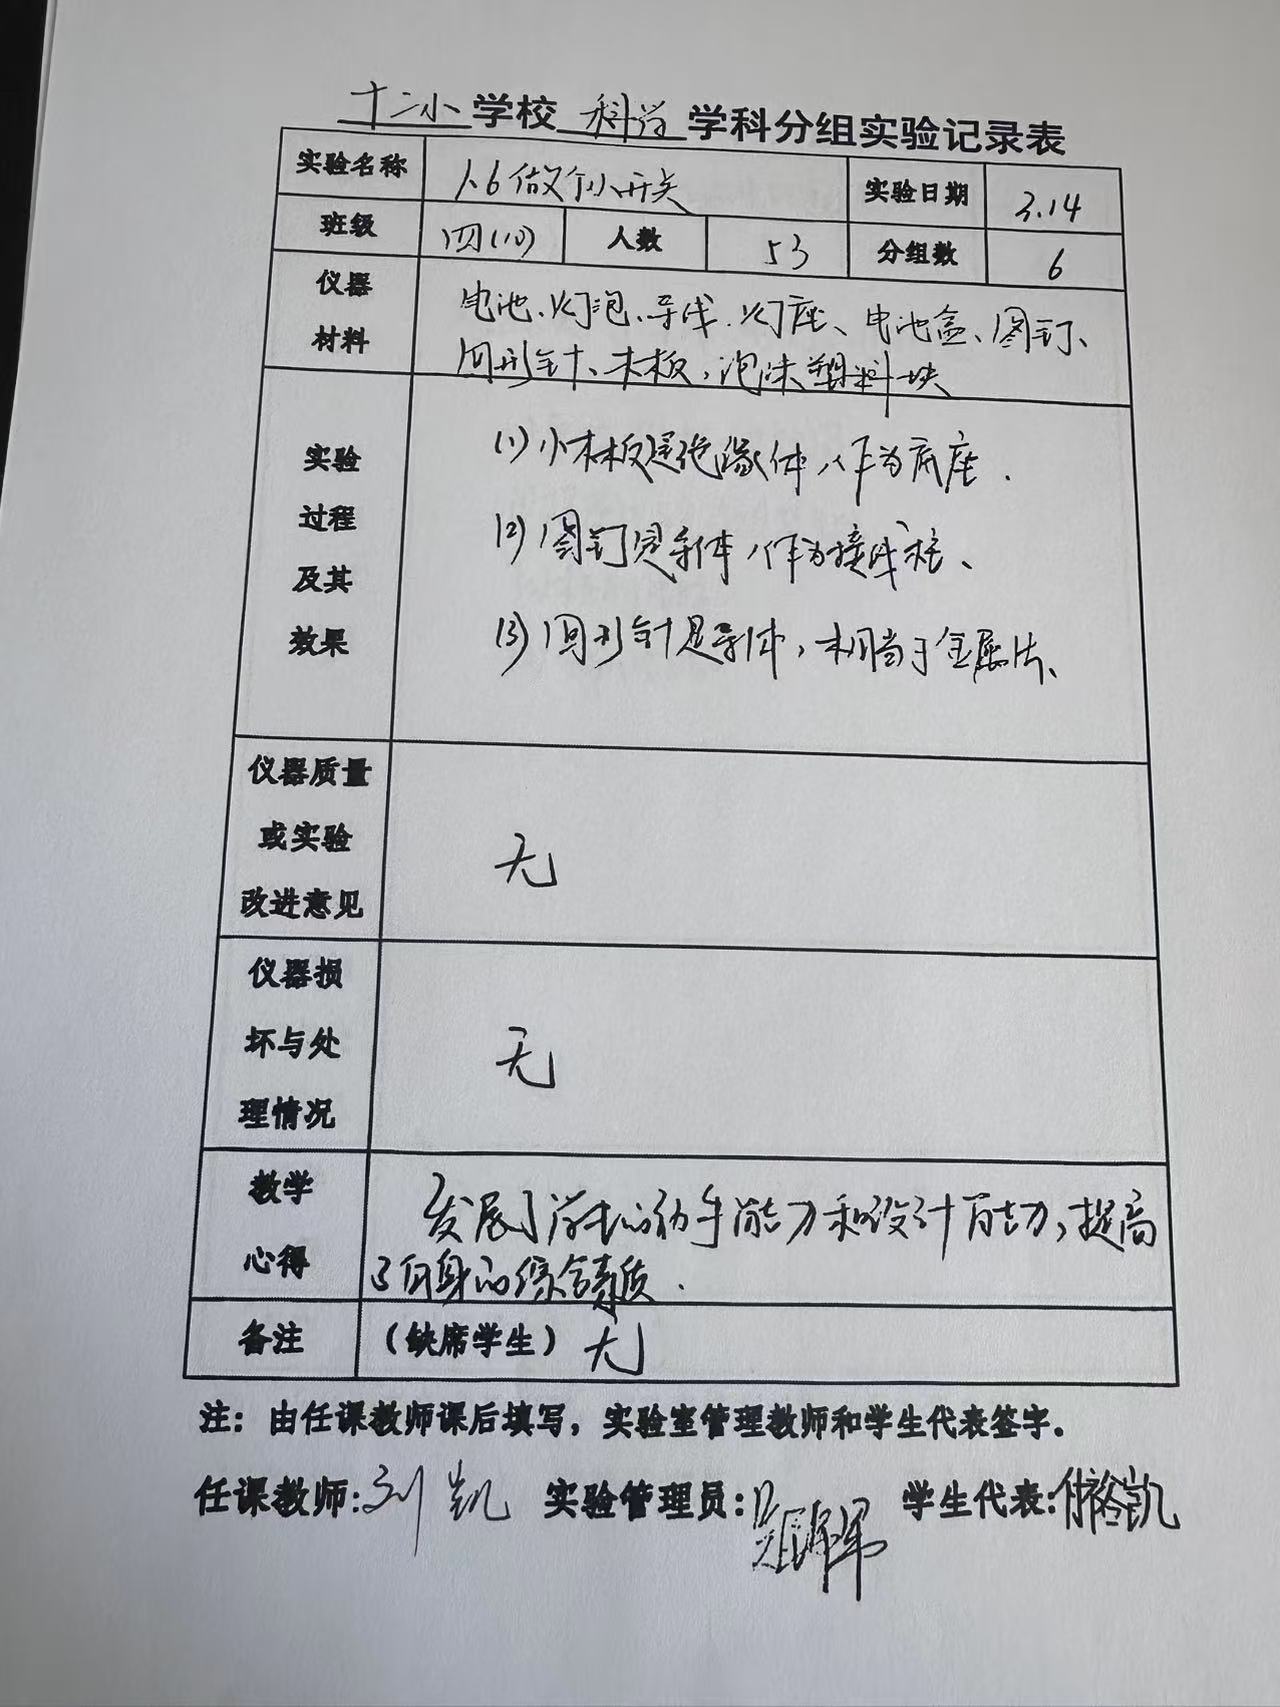 十二小学校 科学 学科分组实验记录表
实验名称 1.6做个小开关 实验日期 3.14
班级 四(10) 人数 53 分组数 6
仪器材料 电池、灯泡、导线、灯座、电池盒、图钉、
回形针、木板、泡沫塑料块
实验过程及其效果
(1)小木板是绝缘体,作为底座.
(2)图钉是导体,作为接线柱、
(3)回形针是导体,相当于金属片、
仪器质量或实验改进意见 无
仪器损坏与处理情况 无
教学心得 发展了学生的动手能力和设计能力,提高
了自身的综合素质.
备注 (缺席学生) 无
注:由任课教师课后填写,实验室管理教师和学生代表签字。
任课教师:刘凯 实验管理员: 学生代表:付裕凯